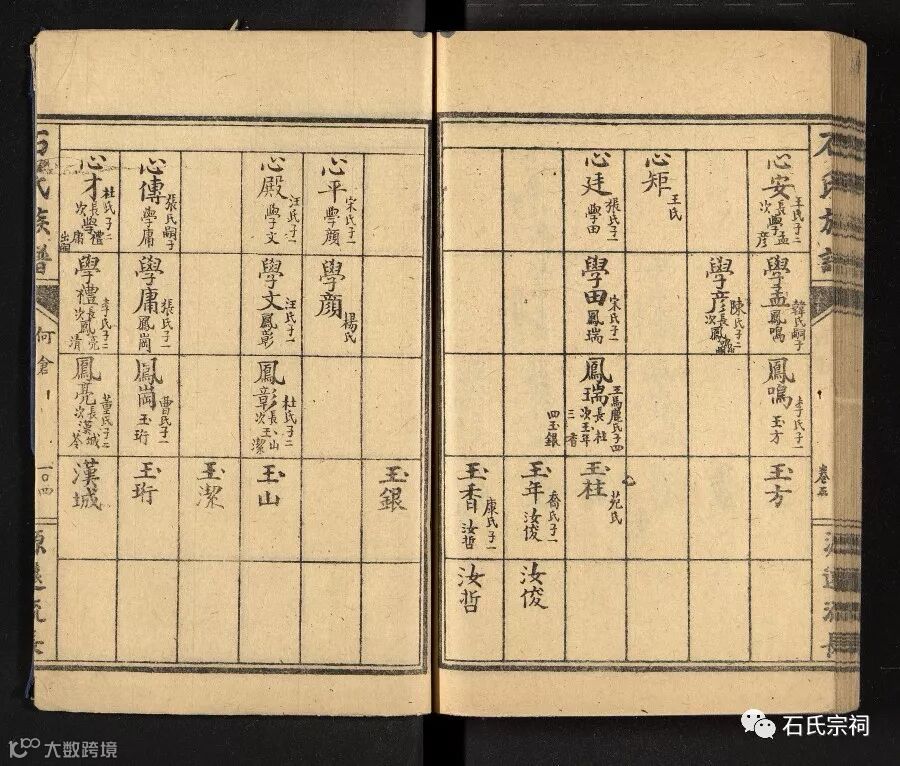 石氏族譜
卷五
源遠流長
心安
王氏子二
長學孟
次學彦
心矩
王氏
心廷
張氏子一
學田
學孟
韓氏嗣子
鳳鳴
學彦
陳氏子二
長鳳
次鳳鳴
學田
宋氏子一
鳳瑞
鳳鳴
李氏子一
玉方
鳳瑞
王馬龐氏子四
長玉柱
次玉年
三玉香
四玉銀
玉方
玉柱
苑氏
玉年
喬氏子一
汝俊
玉香
康氏子一
汝哲
汝俊
汝哲
心平
宋氏子一
學顔
心殿
汪氏子一
學文
心傳
張氏嗣子
學庸
心才
杜氏子二
長學禮
次學庸
出嗣
學顔
楊氏
學文
汪氏子一
鳳彰
學庸
張氏子一
鳳崗
學禮
李氏子二
長鳳亮
次鳳清
鳳彰
杜氏子二
長玉山
次玉潔
鳳崗
曹氏子一
玉珩
鳳亮
董氏子二
長漢城
次漢苓
玉銀
玉山
玉潔
玉珩
漢城
石氏族譜
何倉
一〇四
源遠流長
石氏宗祠
10100 大数跨境